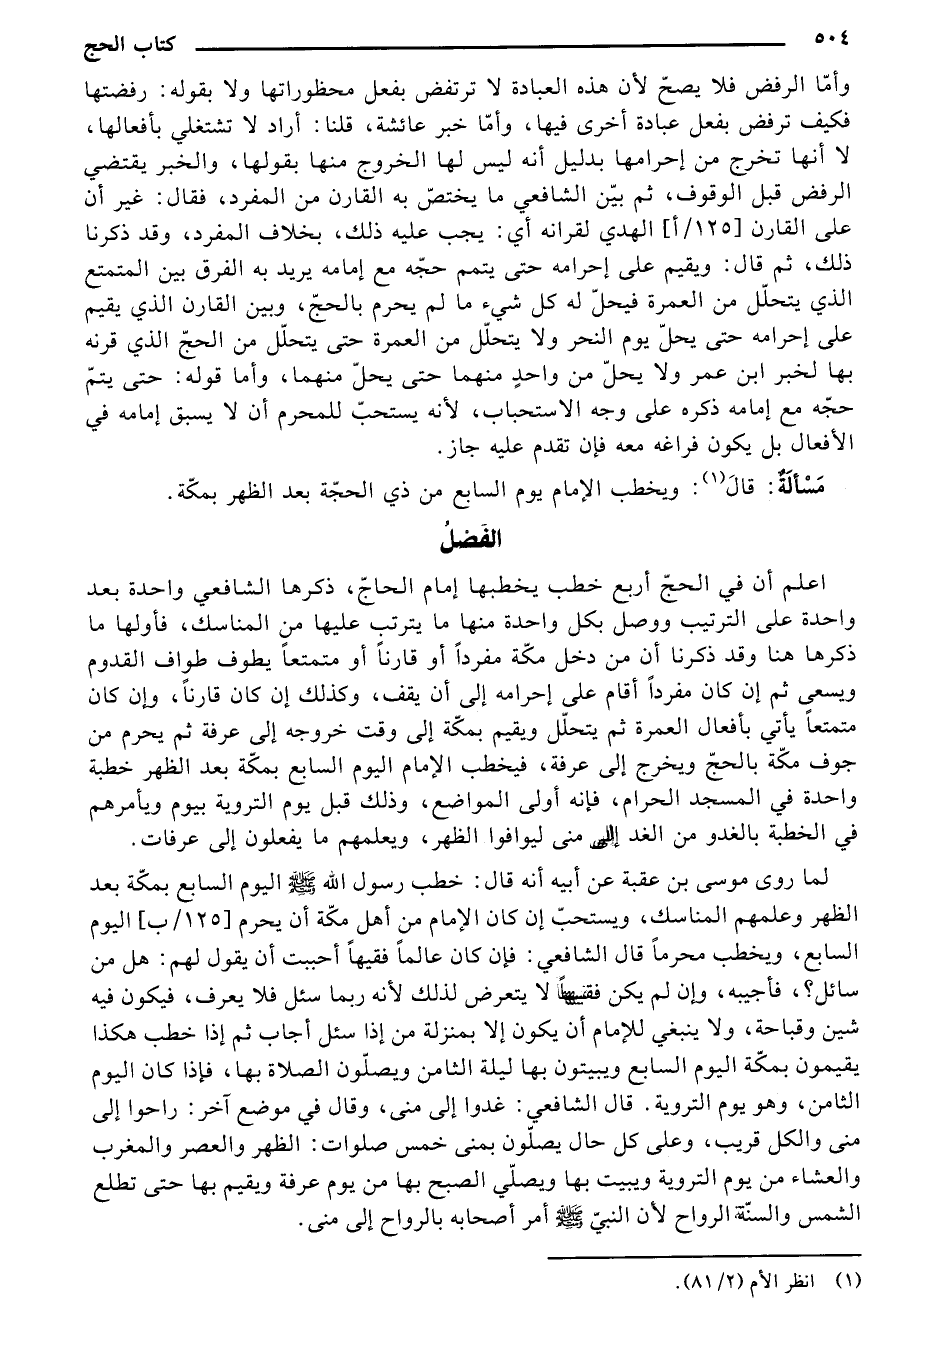 ٥٠٤ كتاب الحج
وأمّا الرفض فلا يصحّ لأن هذه العبادة لا ترتفض بفعل محظوراتها ولا بقوله: رفضتها
فكيف ترفض بفعل عبادة أخرى فيها، وأمّا خبر عائشة، قلنا: أراد لا تشتغلي بأفعالها،
لا أنها تخرج من إحرامها بدليل أنه ليس لها الخروج منها بقولها، والخبر يقتضي
الرفض قبل الوقوف، ثم بيّن الشافعي ما يختصّ به القارن من المفرد، فقال: غير أن
على القارن [١٢٥/أ] الهدي لقرانه أي: يجب عليه ذلك، بخلاف المفرد، وقد ذكرنا
ذلك، ثم قال: ويقيم على إحرامه حتى يتمم حجّه مع إمامه يريد به الفرق بين المتمتع
الذي يتحلّل من العمرة فيحلّ له كل شيء ما لم يحرم بالحجّ، وبين القارن الذي يقيم
على إحرامه حتى يحلّ يوم النحر ولا يتحلّل من العمرة حتى يتحلّل من الحجّ الذي قرنه
بها لخبر ابن عمر ولا يحلّ من واحدٍ منهما حتى يحلّ منهما، وأما قوله: حتى يتمّ
حجّه مع إمامه ذكره على وجه الاستحباب، لأنه يستحبّ للمحرم أن لا يسبق إمامه في
الأفعال بل يكون فراغه معه فإن تقدم عليه جاز.
مَسْأَلَةٌ: قالَ(١): ويخطب الإمام يوم السابع من ذي الحجّة بعد الظهر بمكّة.
الفَصْلُ
اعلم أن في الحجّ أربع خطب يخطبها إمام الحاجّ، ذكرها الشافعي واحدة بعد
واحدة على الترتيب ووصل بكل واحدة منها ما يترتب عليها من المناسك، فأولها ما
ذكرها هنا وقد ذكرنا أن من دخل مكّة مفرداً أو قارناً أو متمتعاً يطوف طواف القدوم
ويسعى ثم إن كان مفرداً أقام على إحرامه إلى أن يقف، وكذلك إن كان قارناً، وإن كان
متمتعاً يأتي بأفعال العمرة ثم يتحلّل ويقيم بمكّة إلى وقت خروجه إلى عرفة ثم يحرم من
جوف مكّة بالحجّ ويخرج إلى عرفة، فيخطب الإمام اليوم السابع بمكّة بعد الظهر خطبة
واحدة في المسجد الحرام، فإنه أولى المواضع، وذلك قبل يوم التروية بيوم ويأمرهم
في الخطبة بالغدو من الغد إلى منى ليوافوا الظهر، ويعلمهم ما يفعلون إلى عرفات.
لما روى موسى بن عقبة عن أبيه أنه قال: خطب رسول الله ﷺ اليوم السابع بمكّة بعد
الظهر وعلمهم المناسك، ويستحبّ إن كان الإمام من أهل مكّة أن يحرم [١٢٥/ب] اليوم
السابع، ويخطب محرماً قال الشافعي: فإن كان عالماً فقيهاً أحببت أن يقول لهم: هل من
سائل؟، فأجيبه، وإن لم يكن فقيهاً لا يتعرض لذلك لأنه ربما سئل فلا يعرف، فيكون فيه
شين وقباحة، ولا ينبغي للإمام أن يكون إلا بمنزلة من إذا سئل أجاب ثم إذا خطب هكذا
يقيمون بمكّة اليوم السابع ويبيتون بها ليلة الثامن ويصلّون الصلاة بها، فإذا كان اليوم
الثامن، وهو يوم التروية. قال الشافعي: غدوا إلى منى، وقال في موضع آخر: راحوا إلى
منى والكل قريب، وعلى كل حال يصلّون بمنى خمس صلوات: الظهر والعصر والمغرب
والعشاء من يوم التروية ويبيت بها ويصلّي الصبح بها من يوم عرفة ويقيم بها حتى تطلع
الشمس والسنّة الرواح لأن النبيّ ﷺ أمر أصحابه بالرواح إلى منى.
(١) انظر الأم (٨١/٢).